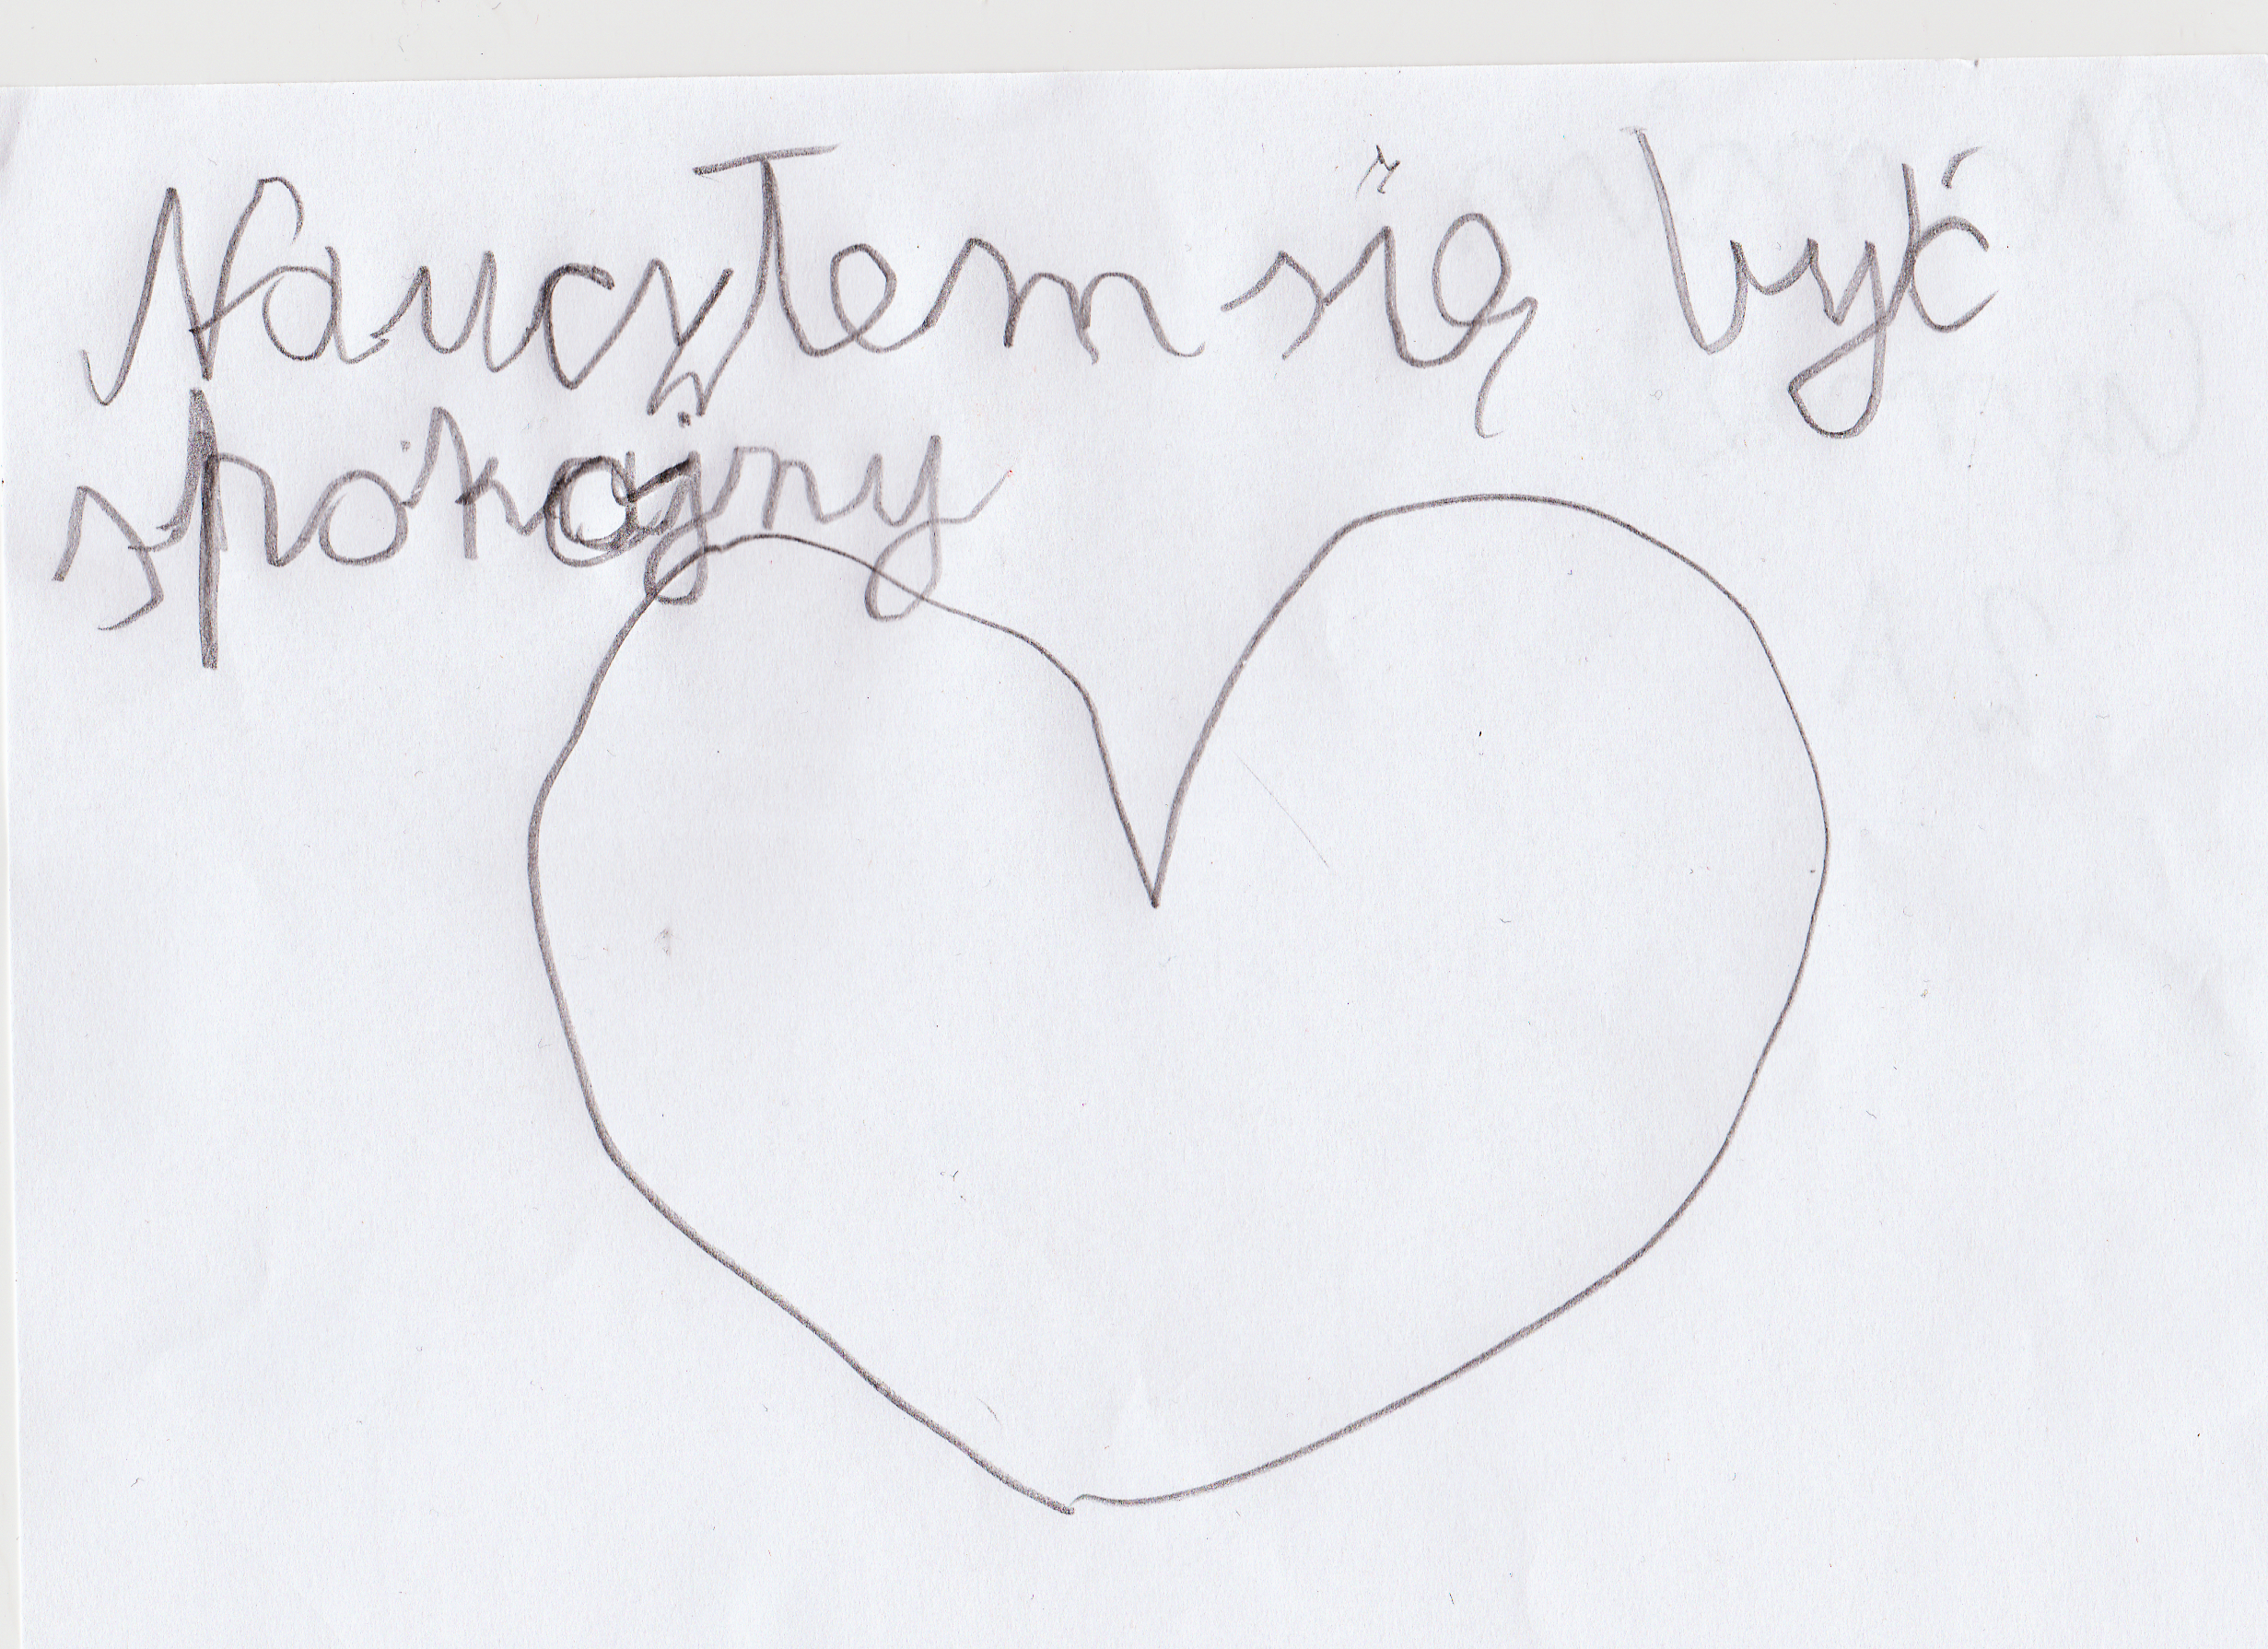 Naucyłem się być
spokojny